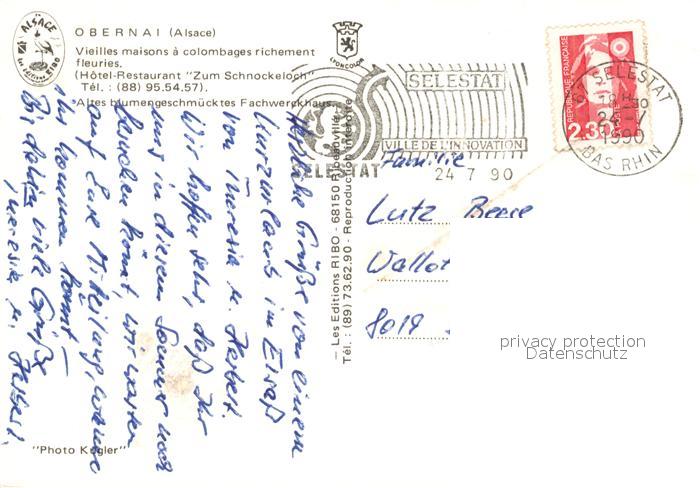 ALSACE
OBERNAI (Alsace)
Vieilles maisons à colombages richement
fleuries.
(Hôtel-Restaurant "Zum Schnockeloch"
Tél. : (88) 95.54.57).
Altes blumengeschmücktes Fachwerkhaus.
LYONCOLOR
Herzliche Grüße von einem
Kurzurlaub im Elsaß
von Theresia u. Herbert.
Wir hoffen sehr, daß Ihr
uns in diesem Sommer noch
besuchen könnt, wir warten
auf Eure Mitteilung, wann
Ihr kommen könnt –
Bis dahin viele Grüße
Theresia u. Herbert.
"Photo Kugler"
– Les Editions RIBO - 68150 Ribeauvillé -
Tél. : (89) 73.62.90 - Reproduction interdite
SELESTAT
SELESTAT
VILLE DE L'INNOVATION
24 7 90
REPUBLIQUE FRANÇAISE
2.3
67 SELESTAT
18 H 30
24 - 7
1990
BAS RHIN
Familie
Lutz
Wallot
8019
privacy protection
Datenschutz